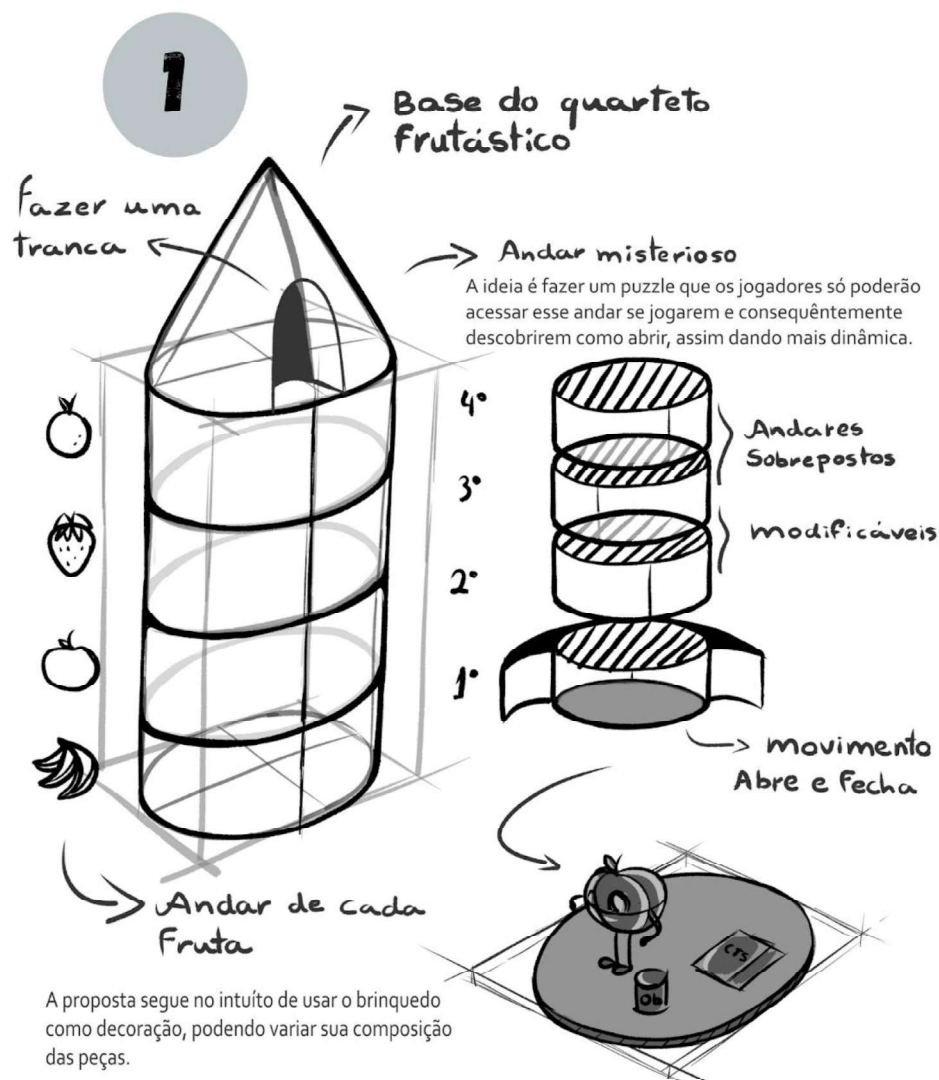 1
Base do quarteto
frutástico
fazer uma
tranca
Andar misterioso
A ideia é fazer um puzzle que os jogadores só poderão
acessar esse andar se jogarem e consequêntemente
descobrirem como abrir, assim dando mais dinâmica.
4°
3°
2°
1°
Andares
Sobrepostos
modificáveis
movimento
Abre e fecha
Andar de cada
Fruta
A proposta segue no intuíto de usar o brinquedo
como decoração, podendo variar sua composição
das peças.
CTS
Obj